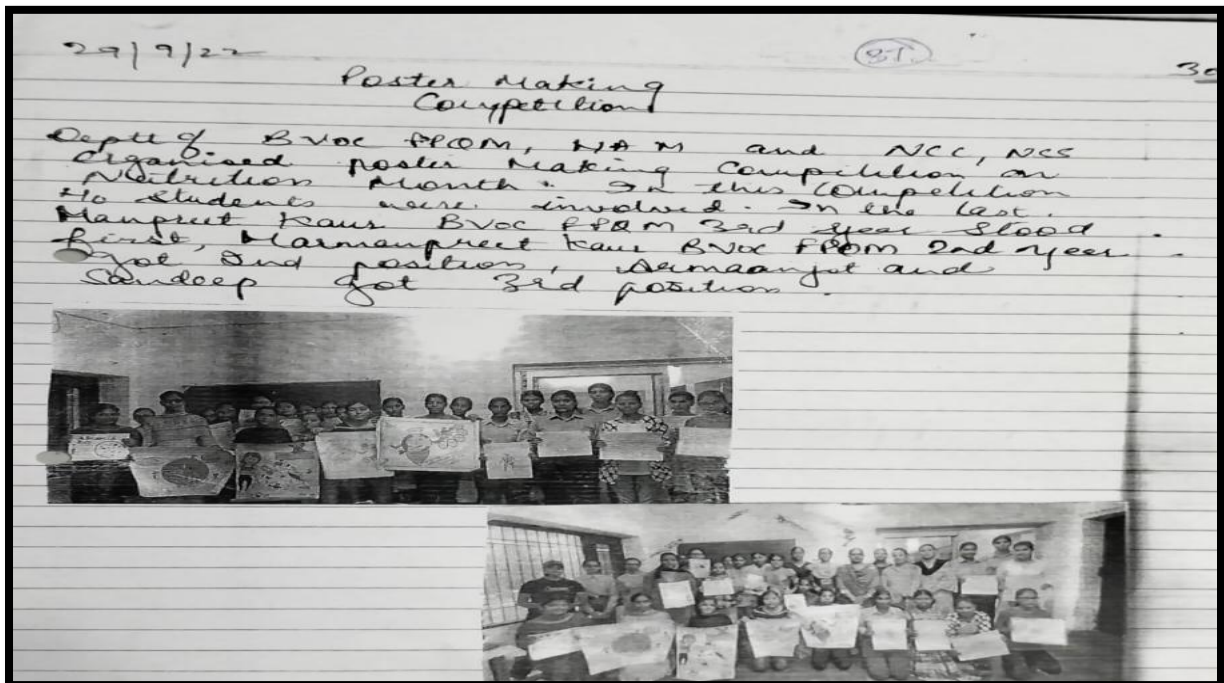 29/9/22
30
Poster Making
Competition
Deptt of BVOC FPQM, and NCC,
Organised poster Making Competition on
Nutrition Month. In this Competition
40 Students were involved. In the last.
Manpreet Kaur BVoc FPQM 3rd year Stood
first, Harmanpreet Kaur BVoc FPQM 2nd year.
got 2nd position, Armaanjot and
Sandeep got 3rd position.